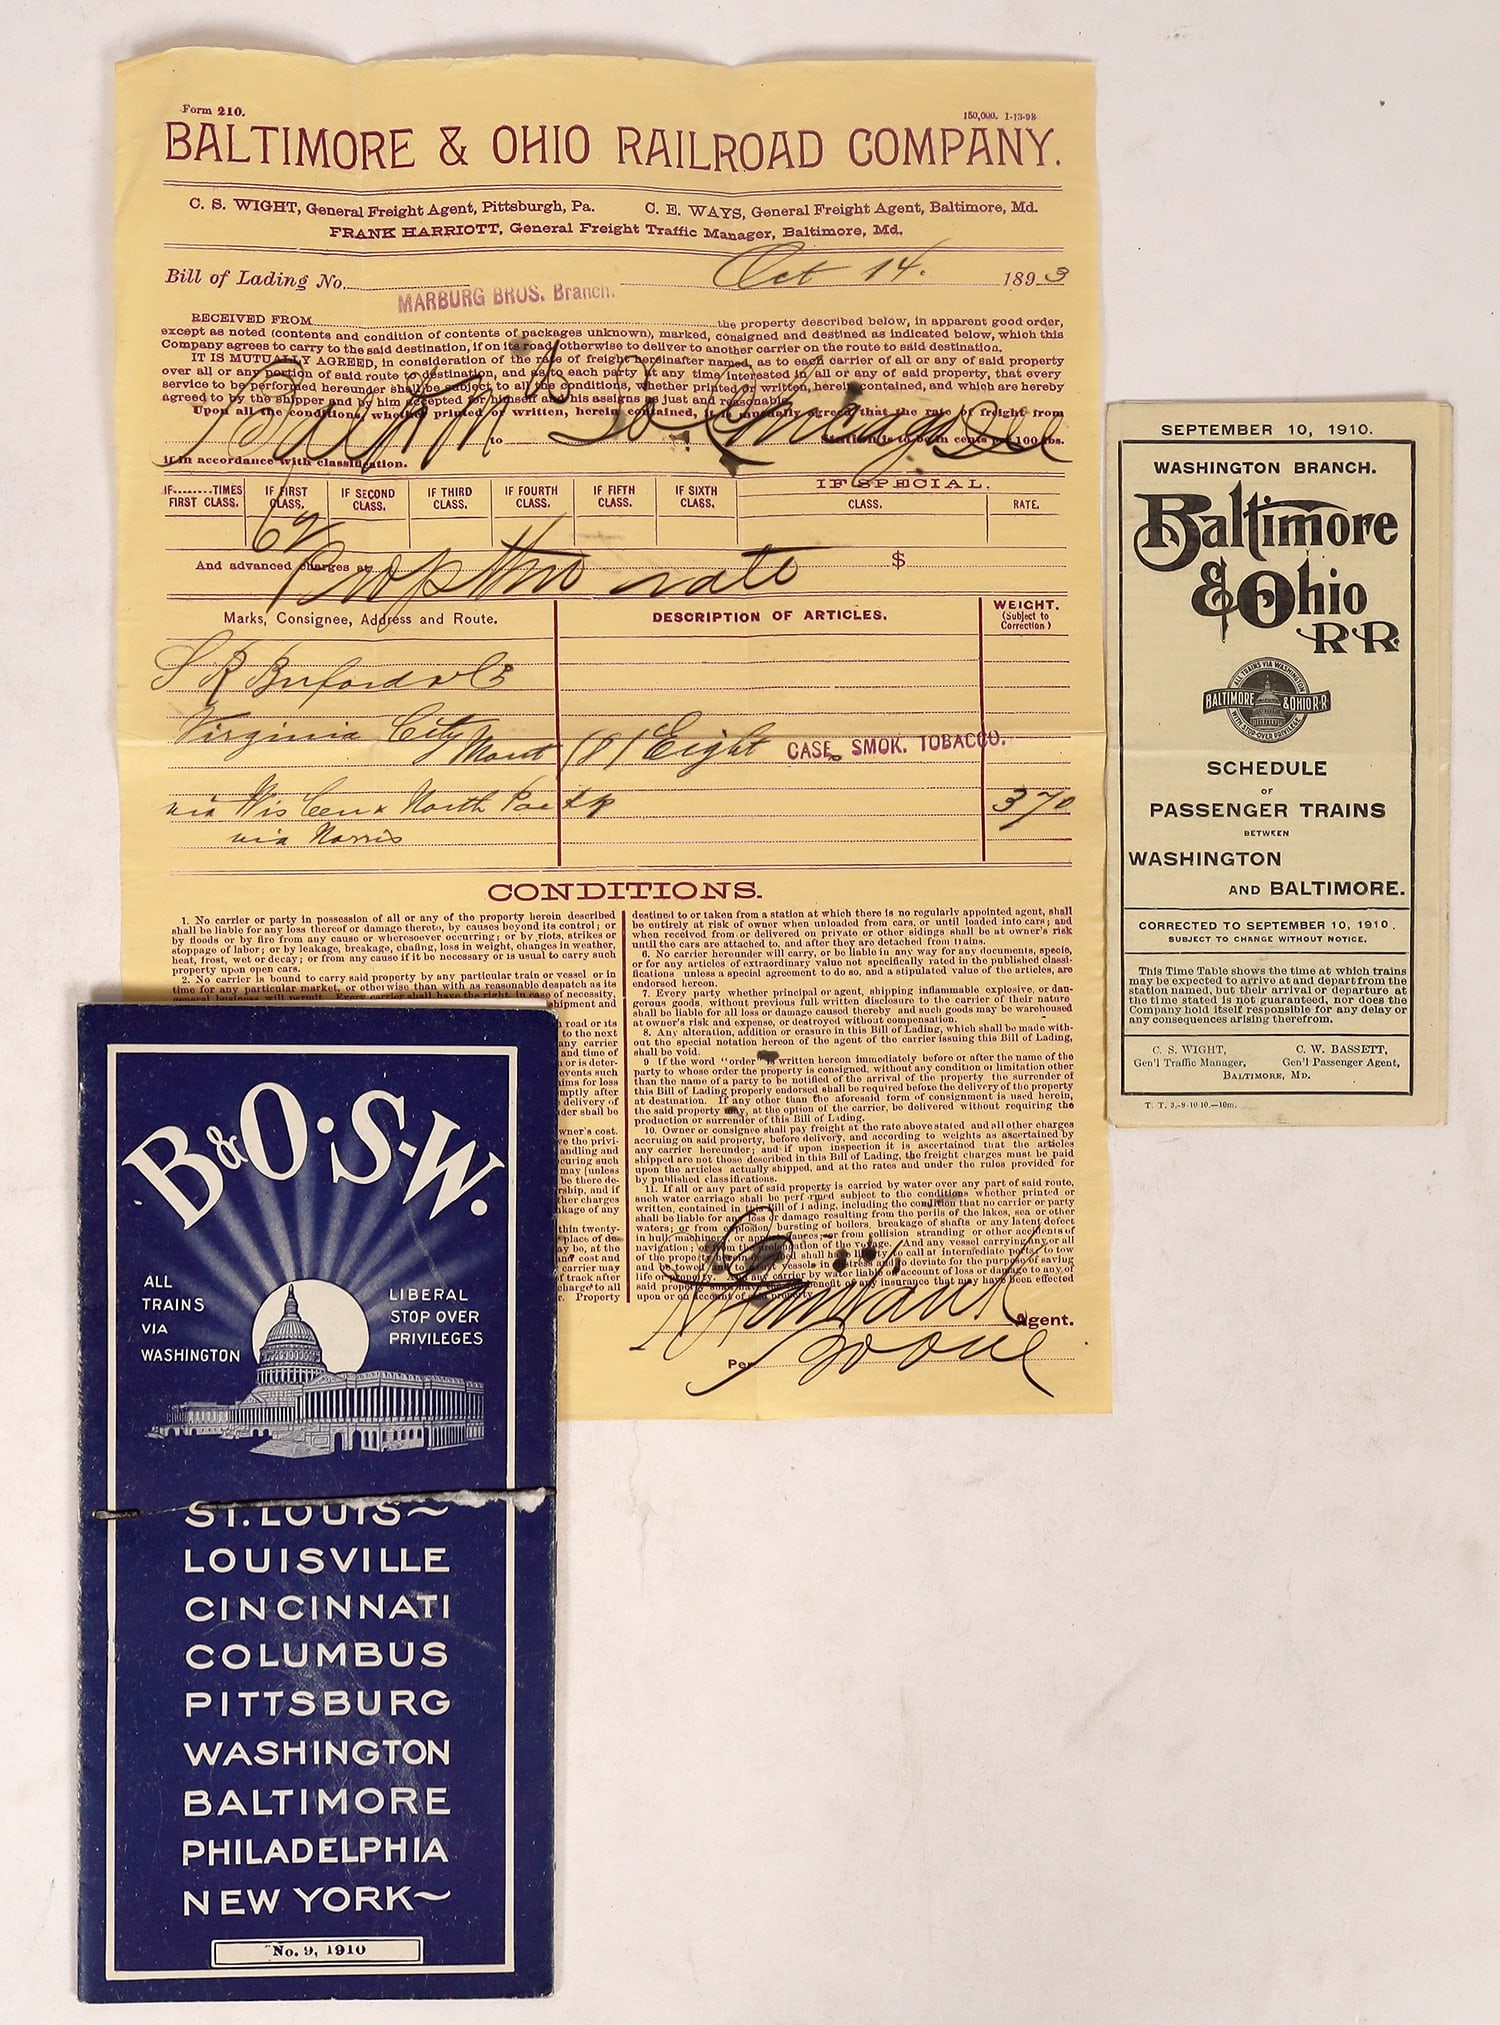 Form 210.
150,000. 1-13-93
BALTIMORE & OHIO RAILROAD COMPANY.
C. S. WIGHT, General Freight Agent, Pittsburgh, Pa. C. E. WAYS, General Freight Agent, Baltimore, Md.
FRANK HARRIOTT, General Freight Traffic Manager, Baltimore, Md.
Bill of Lading No. Oct 14. 1893
MARBURG BROS. Branch.
RECEIVED FROM the property described below, in apparent good order,
except as noted (contents and condition of contents of packages unknown), marked, consigned and destined as indicated below, which this
Company agrees to carry to the said destination, if on its road, otherwise to deliver to another carrier on the route to said destination.
IT IS MUTUALLY AGREED, in consideration of the rate of freight hereinafter named, as to each carrier of all or any of said property
over all or any portion of said route to destination, and as to each party at any time interested in all or any of said property, that every
service to be performed hereunder shall be subject to all the conditions, whether printed or written, herein contained, and which are hereby
agreed to by the shipper and by him accepted for himself and his assigns as just and reasonable.
Upon all the conditions, whether printed or written, herein contained, it is mutually agreed that the rate of freight from
to Chicago Station is to be in cents per 100 lbs.
if in accordance with classification.
IF........TIMES FIRST CLASS. IF FIRST CLASS. IF SECOND CLASS. IF THIRD CLASS. IF FOURTH CLASS. IF FIFTH CLASS. IF SIXTH CLASS. IF SPECIAL.
CLASS. RATE.
And advanced charges at rate $
Marks, Consignee, Address and Route. DESCRIPTION OF ARTICLES. WEIGHT.
(Subject to
Correction)
S R Buford & Co
Virginia City
Mont (8) Eight CASE SMOK. TOBACCO.
via Wis Cen & North Pac 370
via Norris
CONDITIONS.
1. No carrier or party in possession of all or any of the property herein described
shall be liable for any loss thereof or damage thereto, by causes beyond its control; or
by floods or by fire from any cause or wheresoever occurring; or by riots, strikes or
stoppage of labor; or by leakage, breakage, chafing, loss in weight, changes in weather,
heat, frost, wet or decay; or from any cause if it be necessary or is usual to carry such
property upon open cars.
2. No carrier is bound to carry said property by any particular train or vessel or in
time for any particular market, or otherwise than with as reasonable despatch as its
general business will permit. Every carrier shall have the right, in case of necessity,
shipment and
road or its
to the next
any carrier
and time of
or is deter-
events such
aims for loss
mptly after
delivery of
der shall be
wner's cost.
ve the privi-
andling and
curing such
may (unless
be there de-
rship, and if
ther charges
kage of any
thin twenty-
place of de-
ay be, at the
cost and
carrier may
f track after
charge to all
r. Property
destined to or taken from a station at which there is no regularly appointed agent, shall
be entirely at risk of owner when unloaded from cars, or until loaded into cars; and
when received from or delivered on private or other sidings shall be at owner's risk
until the cars are attached to, and after they are detached from trains.
6. No carrier hereunder will carry, or be liable in any way for any documents, specie,
or for any articles of extraordinary value not specifically rated in the published classi-
fications unless a special agreement to do so, and a stipulated value of the articles, are
endorsed hereon.
7. Every party whether principal or agent, shipping inflammable explosive, or dan-
gerous goods, without previous full written disclosure to the carrier of their nature
shall be liable for all loss or damage caused thereby and such goods may be warehoused
at owner's risk and expense, or destroyed without compensation.
8. Any alteration, addition or erasure in this Bill of Lading, which shall be made with-
out the special notation hereon of the agent of the carrier issuing this Bill of Lading,
shall be void.
9 If the word "order" is written hereon immediately before or after the name of the
party to whose order the property is consigned, without any condition or limitation other
than the name of a party to be notified of the arrival of the property the surrender of
this Bill of Lading properly endorsed shall be required before the delivery of the property
at destination. If any other than the aforesaid form of consignment is used herein,
the said property may, at the option of the carrier, be delivered without requiring the
production or surrender of this Bill of Lading.
10. Owner or consignee shall pay freight at the rate above stated and all other charges
accruing on said property, before delivery, and according to weights as ascertained by
any carrier hereunder; and if upon inspection it is ascertained that the articles
shipped are not those described in this Bill of Lading, the freight charges must be paid
upon the articles actually shipped, and at the rates and under the rules provided for
by published classifications.
11. If all or any part of said property is carried by water over any part of said route,
such water carriage shall be performed subject to the conditions whether printed or
written, contained in this Bill of Lading, including the condition that no carrier or party
shall be liable for any loss or damage resulting from the perils of the lakes, sea or other
waters; or from explosion, bursting of boilers, breakage of shafts or any latent defect
in hull, machinery or appurtenances; or from collision stranding or other accidents of
navigation; or from the prolongation of the voyage. And any vessel carrying any or all
of the property herein described shall have liberty to call at intermediate ports; to tow
and be towed, and to assist vessels in distress and to deviate for the purpose of saving
life or property. And any carrier by water liable on account of loss or damage to any of
said property shall have the benefit of any insurance that may have been effected
upon or on account of said property.
Agent.
Per Boone
SEPTEMBER 10, 1910.
WASHINGTON BRANCH.
Baltimore
& Ohio
RR.
ALL TRAINS VIA WASHINGTON
BALTIMORE & OHIO R-R
WITH STOP-OVER PRIVILEGE
SCHEDULE
OF
PASSENGER TRAINS
BETWEEN
WASHINGTON
AND BALTIMORE.
CORRECTED TO SEPTEMBER 10, 1910.
SUBJECT TO CHANGE WITHOUT NOTICE.
This Time Table shows the time at which trains
may be expected to arrive at and depart from the
station named, but their arrival or departure at
the time stated is not guaranteed, nor does the
Company hold itself responsible for any delay or
any consequences arising therefrom.
C. S. WIGHT, C. W. BASSETT,
Gen'l Traffic Manager, Gen'l Passenger Agent,
BALTIMORE, MD.
T. T. 3.-9-10-10.-10m.
B&O·S-W.
ALL
TRAINS
VIA
WASHINGTON
LIBERAL
STOP OVER
PRIVILEGES
ST. LOUIS~
LOUISVILLE
CINCINNATI
COLUMBUS
PITTSBURG
WASHINGTON
BALTIMORE
PHILADELPHIA
NEW YORK~
No. 9, 1910